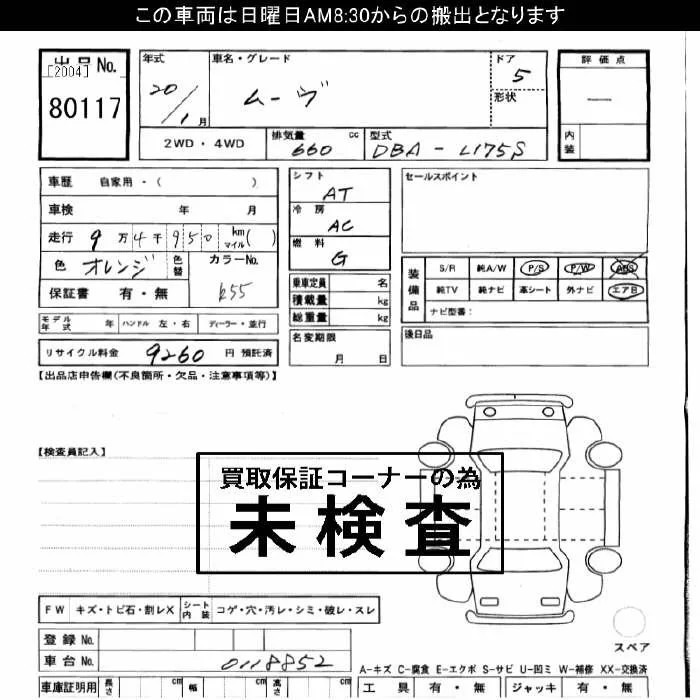 この車両は日曜日AM8:30からの搬出となります
出品No.
[2004]
80117
年式
20/1月
車名・グレード
ムーヴ
ドア
5
形状
評価点
—
内装
2WD・4WD
排気量 cc
660
型式
DBA-L175S
車歴 自家用・( )
車検 年 月
走行 9万4千950 km マイル( )
色 オレンジ 色替 カラーNo.
R55
保証書 有・無
シフト
AT
冷房
AC
燃料
G
乗車定員 名
積載量 kg
総重量 kg
名変期限
月 日
セールスポイント
装備品
S/R 純A/W P/S P/W ABS
純TV 純ナビ 革シート 外ナビ エアB
ナビ型番:
後日品
モデル年式 年 ハンドル 左・右 ディーラー・並行
リサイクル料金 9260 円 預託済
【出品店申告欄(不良箇所・欠品・注意事項等)】
【検査員記入】
買取保証コーナーの為
未検査
FW キズ・トビ石・割レX シート内装 コゲ・穴・汚レ・シミ・破レ・スレ
スペア
登録No.
車台No. 0118852
A-キズ C-腐食 E-エクボ S-サビ U-凹ミ W-補修 XX-交換済
車庫証明用 長さ cm 幅 cm 高さ cm
工具 有・無 ジャッキ 有・無